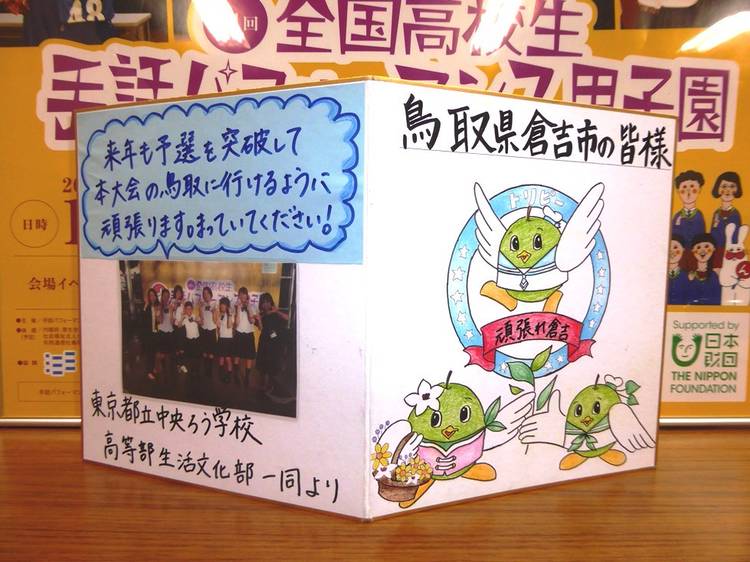 全国高校生
手話パフォーマンス甲子園
来年も予選を突破して
本大会の鳥取に行けるように
頑張ります。まっていてください!
東京都立中央ろう学校
高等部生活文化部一同より
鳥取県倉吉市の皆様
トリピー
頑張れ倉吉
日時
会場イベ
Supported by
日本
財団
THE NIPPON
FOUNDATION